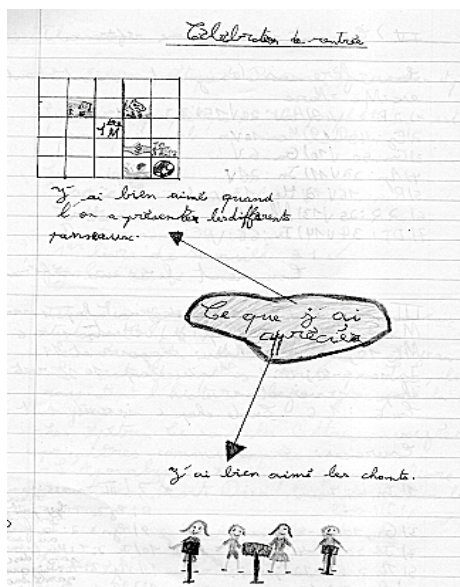 Célébration de rentrée
M
J'ai bien aimé quand
l'on a présenter les différents
panneaux.
Ce que j'ai
apprécier
J'ai bien aimé les chants.